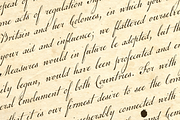 peal of
the acts of regulation
Britain and her Colonies, in which you
your aid and influence; we flattered ourselves
Measures would in future be adopted, but the
ily begun, would have been prefected and
eral Enrichment of both Countries. For with
that it is our firmest desire to see the
inseparably connected with